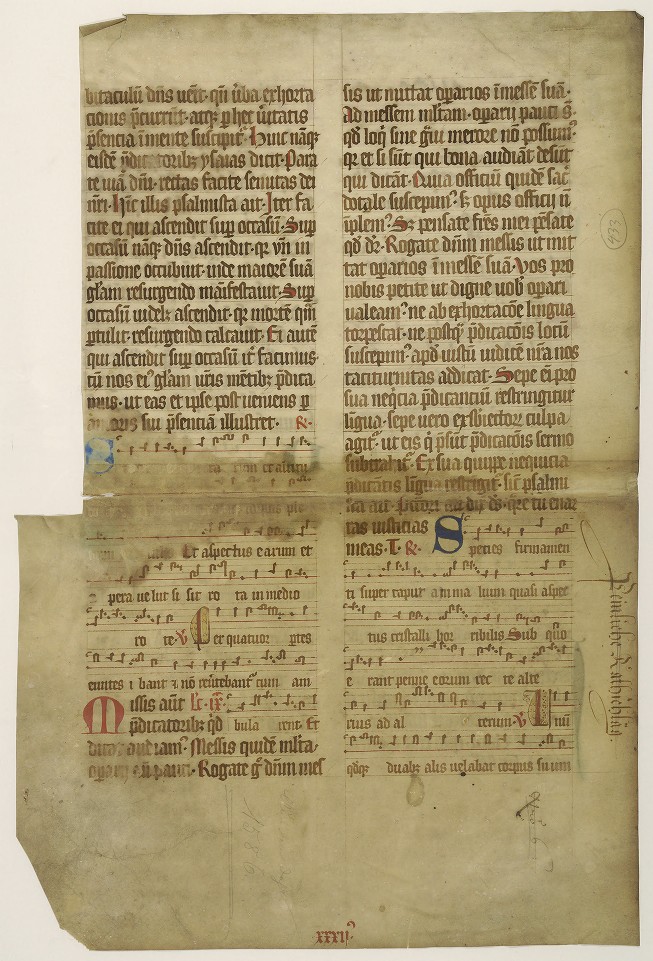 bitaculū dn̄s uen̄t · qn̄ ūba exhorta
cionis p̄currūt · atq; ꝑ hec ūitatis
p̄sencia ī mente suscipit᷑ · Hinc nāq;
eisdē p̄dicatoribꝫ ysaias dicit · Para
te uiā dn̄i · rectas facite semitas dei
nr̄i · Hīc illis psalmista ait · Iter fa
cite ei qui ascendit suꝑ occasū · Suꝑ
occasū nāq; dn̄s ascendit · qꝛ vn̄ in
passione occubuit · inde maiorē suā
gl̄am resurgendo māifestauit · Suꝑ
occasū uidelꝫ ascendit · qꝛ mortē qm̄
ꝑtulit · resurgendo calcauit · Ei autē
qui ascendit suꝑ occasū it᷑ facimus ·
cū nos eiꝰ gl̄am ur̄is mētibꝫ p̄dica
mus · ut eas et ipse post ueniens ꝑ
amoris sui p̄senciā illustret · ꝶ ·
et altitu
ple
Et aspectus earum et
pera uelut si sit ro ta in medio
ro te ℣ Per quatuor ꝑtes
euntes i bant ⁊ nō reūtebant᷑ cum am
Missis aūt lc̄ · ix ·
p̄dicatoribꝫ qd̄ bula rent · Et
audiamꝰ · Messis quidē ml̄ta ·
pauci · Rogate g̊ dn̄m mes
sis ut mittat oꝑarios ī messē suā ·
Ad messem ml̄tam · oꝑarii pauci s̄ ·
qd̄ loq̇ sine ḡui merore nō possumꝰ ·
qꝛ et si sūt qui bona audiāt desūt
qui dicāt · Quia officiū quidē sac̄
dotale suscepimꝰ · sꝫ opus officii n̄
īplemꝰ · Sꝫ pensate fr̄es mei pēsate
qd̄ dr̄ · Rogate dn̄m messis ut mit
tat oꝑarios ī messē suā · Vos pro
nobis petite ut digne uob̄ oꝑari
ualeamꝰ · ne ab exhortacōe lingua
torpescat · ne postq̄ p̄dicacōis locū
suscepimꝰ · apd̄ iustū iudicē nr̄a nos
taciturnitas addicat · Sepe ei̅ pro
sua neq̇cia p̄dicantiū restringitur
līgua · sepe uero ex sb̄iectoꝝ culpa
agit᷑ · ut eis q̇ p̄sūt p̄dicacōis sermo
subtrahat᷑ · Ex sua quippe nequicia
p̄dicātis līgua restrīgit᷑ · sic̄ psalmi
sta ait · Pctōri aū dix̄ ds̄ · q̄re tu enar
ras iusticias
meas · T · ꝶ · Species firmamen
ti super caput anima lium quasi aspec
tus cristalli hor ribilis Sub quo
e rant penne eorum rec te alte
rius ad al terum · ℣ Unū
qd̄q; duabꝫ alis uelabat corpus suum
433
xxxijꝰ